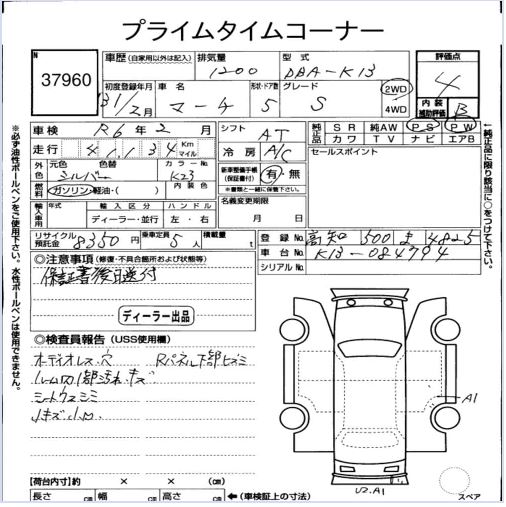 プライムタイムコーナー
N 37960
車歴 (自家用以外は記入) 排気量 1200 型式 DBA-K13
初度登録年月 31/2月 車名 マーチ 形状・ドア数 5 グレード S 2WD 4WD
評価点 4
内装補助評価 B
車検 R6年2月 シフト AT
純正品 SR 純AW PS PW
カワ TV ナビ エアB
走行 41,134 Km マイル 冷房 A/C
セールスポイント
外色 元色 シルバー 色替 カラーNo. K23
燃料 ガソリン・軽油・( ) 内装色
新車整備手帳(保証書付) 有・無
※書類と一緒に保管下さい。
輸入車用 年式 輸入区分 ハンドル
ディーラー・並行 左・右
名義変更期限 月 日
リサイクル預託金 8350円 乗車定員 5人 積載量 t
登録No 高知 500 ま 4825
車台No. K13-084794
シリアルNo.
◎注意事項(修復・不具合箇所および状態等)
保証書後日送付
ディーラー出品
◎検査員報告(USS使用欄)
オーディオレス穴 Rパネル下部ヒズミ
ルーム内1部汚れ・キズ
シートウスシミ
小キズ小凹
A1
U2.A1
【荷台内寸】約 × × (cm)
長さ cm 幅 cm 高さ cm ←(車検証上の寸法)
スペア
※必ず油性ボールペンをご使用下さい。水性ボールペンは使用できません。
←純正品に限り該当に○をつけて下さい。